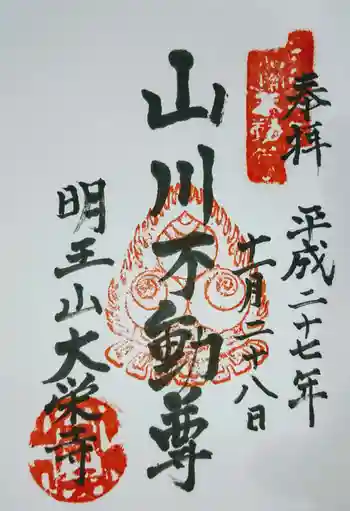 奉拝
平成二十七年
十二月二十八日
山川不動尊
明王山大栄寺